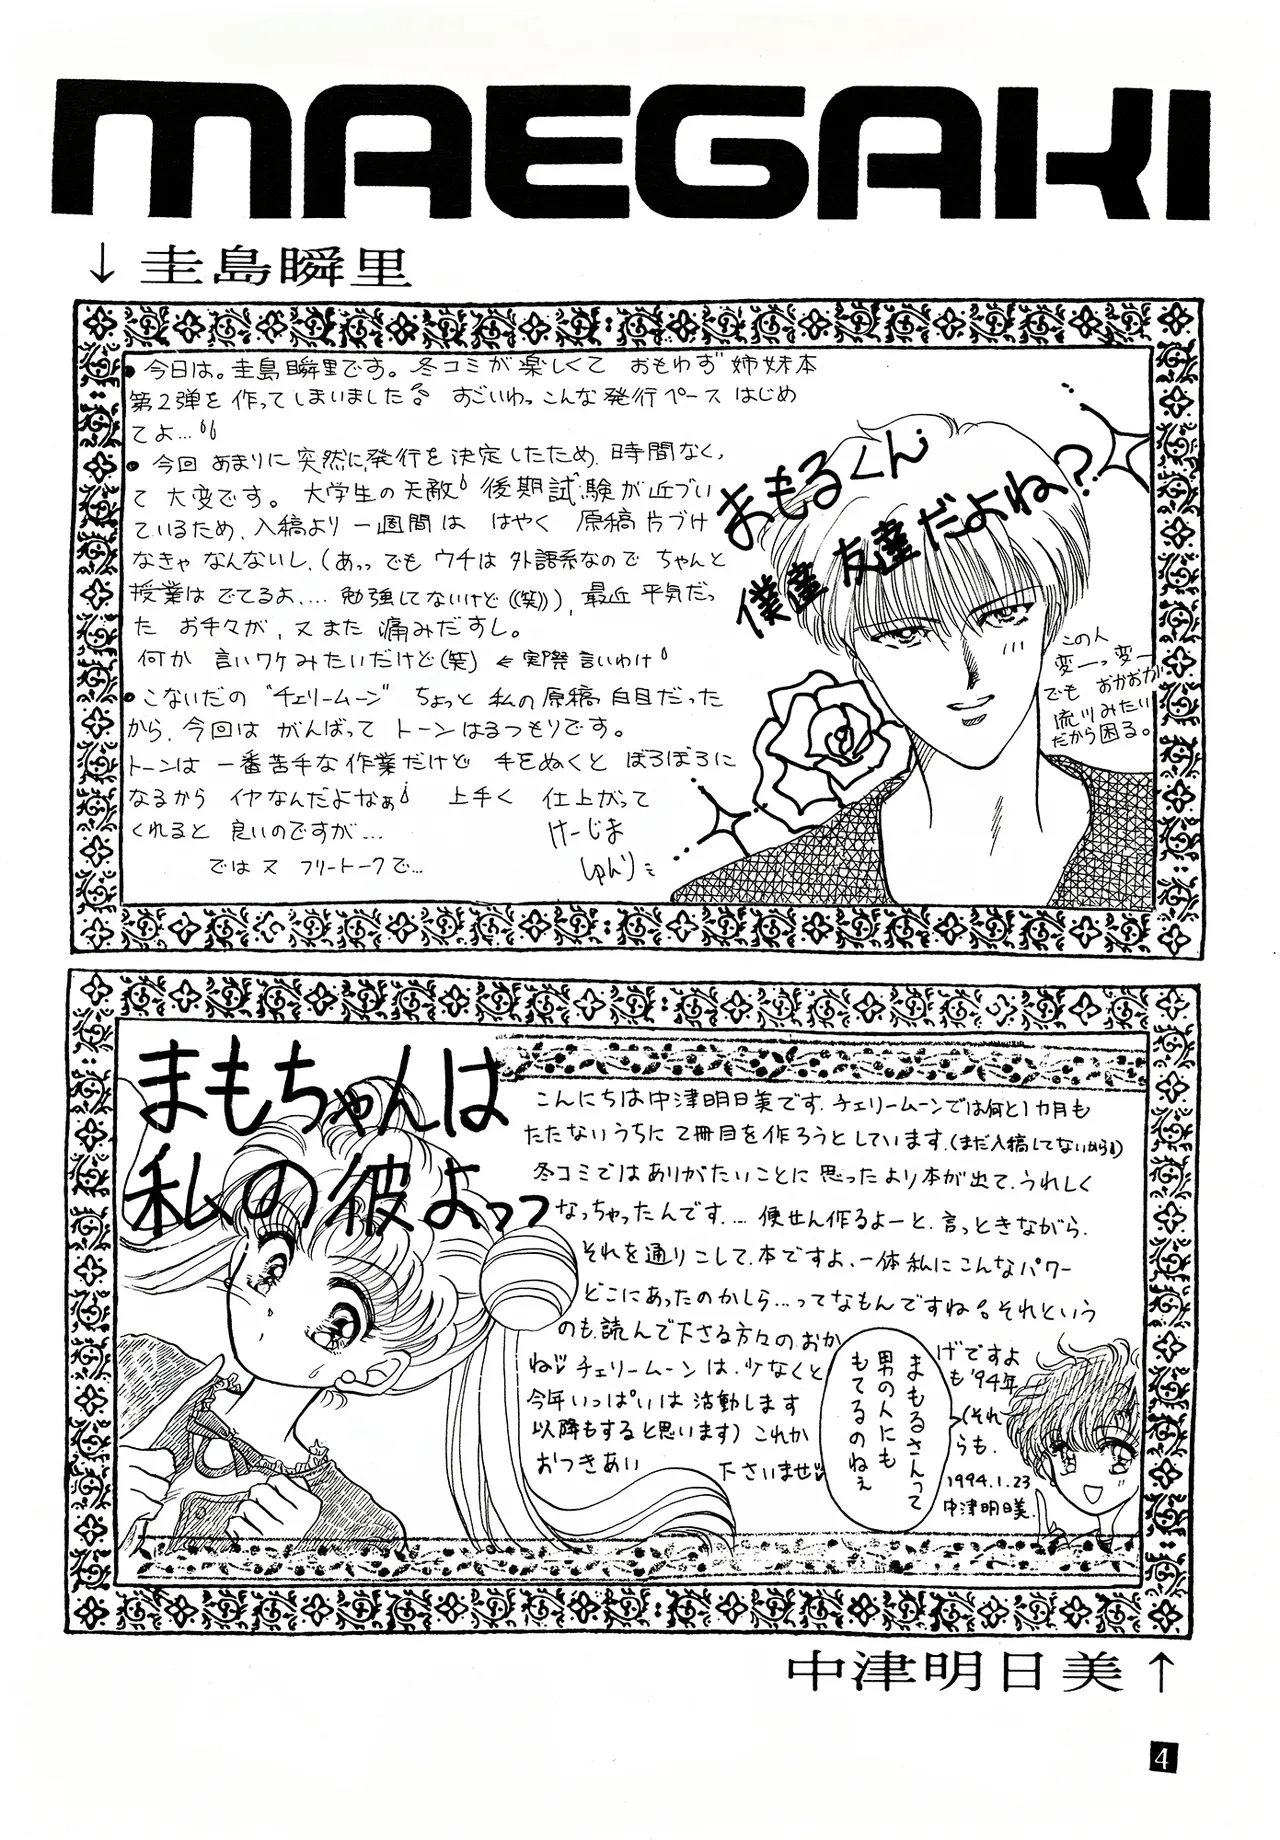 MAEGAKI
↓圭島瞬里
●今日は。圭島瞬里です。冬コミが楽しくて おもわず 姉妹本
第2弾を作ってしまいました。 すごいわっこんな発行ペース はじめ
てよ…
●今回 あまりに突然に発行を決定したため、時間なく
て 大変です。 大学生の天敵 後期試験が近づい
ているため、入稿より 一週間は はやく 原稿片づけ
なきゃ なんないし、(あっ でも ウチは 外語系なので ちゃんと
授業は でてるよ…. 勉強してないけど((笑))、最近 平気だっ
た お手々が、又また 痛みだすし。
何か 言いワケみたいだけど(笑) ← 実際言いわけ
●こないだの “チェリームーン” ちょっと 私の原稿 白目だった
から、今回は がんばって トーンはるつもりです。
トーンは 一番苦手な作業だけど 手をぬくと ぼろぼろに
なるから イヤなんだよなぁ 上手く 仕上がって
くれると 良いのですが…
けーじま
しゅんり
では又 フリートークで…
まもるくん
僕達 友達だよね?
この人
変ーっ変ー
でも おかおが
流川みたい
だから困る。
まもちゃんは
私の彼よっっ
こんにちは中津明日美です。チェリームーンでは何と1カ月も
たたないうちに2冊目を作ろうとしています。(まだ入稿してないから)
冬コミではありがたいことに 思ったより本が出て、うれしく
なっちゃったんです…. 便せん作るよーと、言っときながら、
それを通りこして、本ですよ、一体私にこんなパワー
どこにあったのかしら…ってなもんですね。それという
のも、読んで下さる方々のおか
げですよ
ね チェリームーンは、少なくと
も'94年
今年いっぱいは 活動します
(それ
以降もすると思います) これか
らも、
おつきあい 下さいませ
1994.1.23
中津明日美.
まもるさんって
男の人にも
もてるのねぇ
中津明日美↑
4